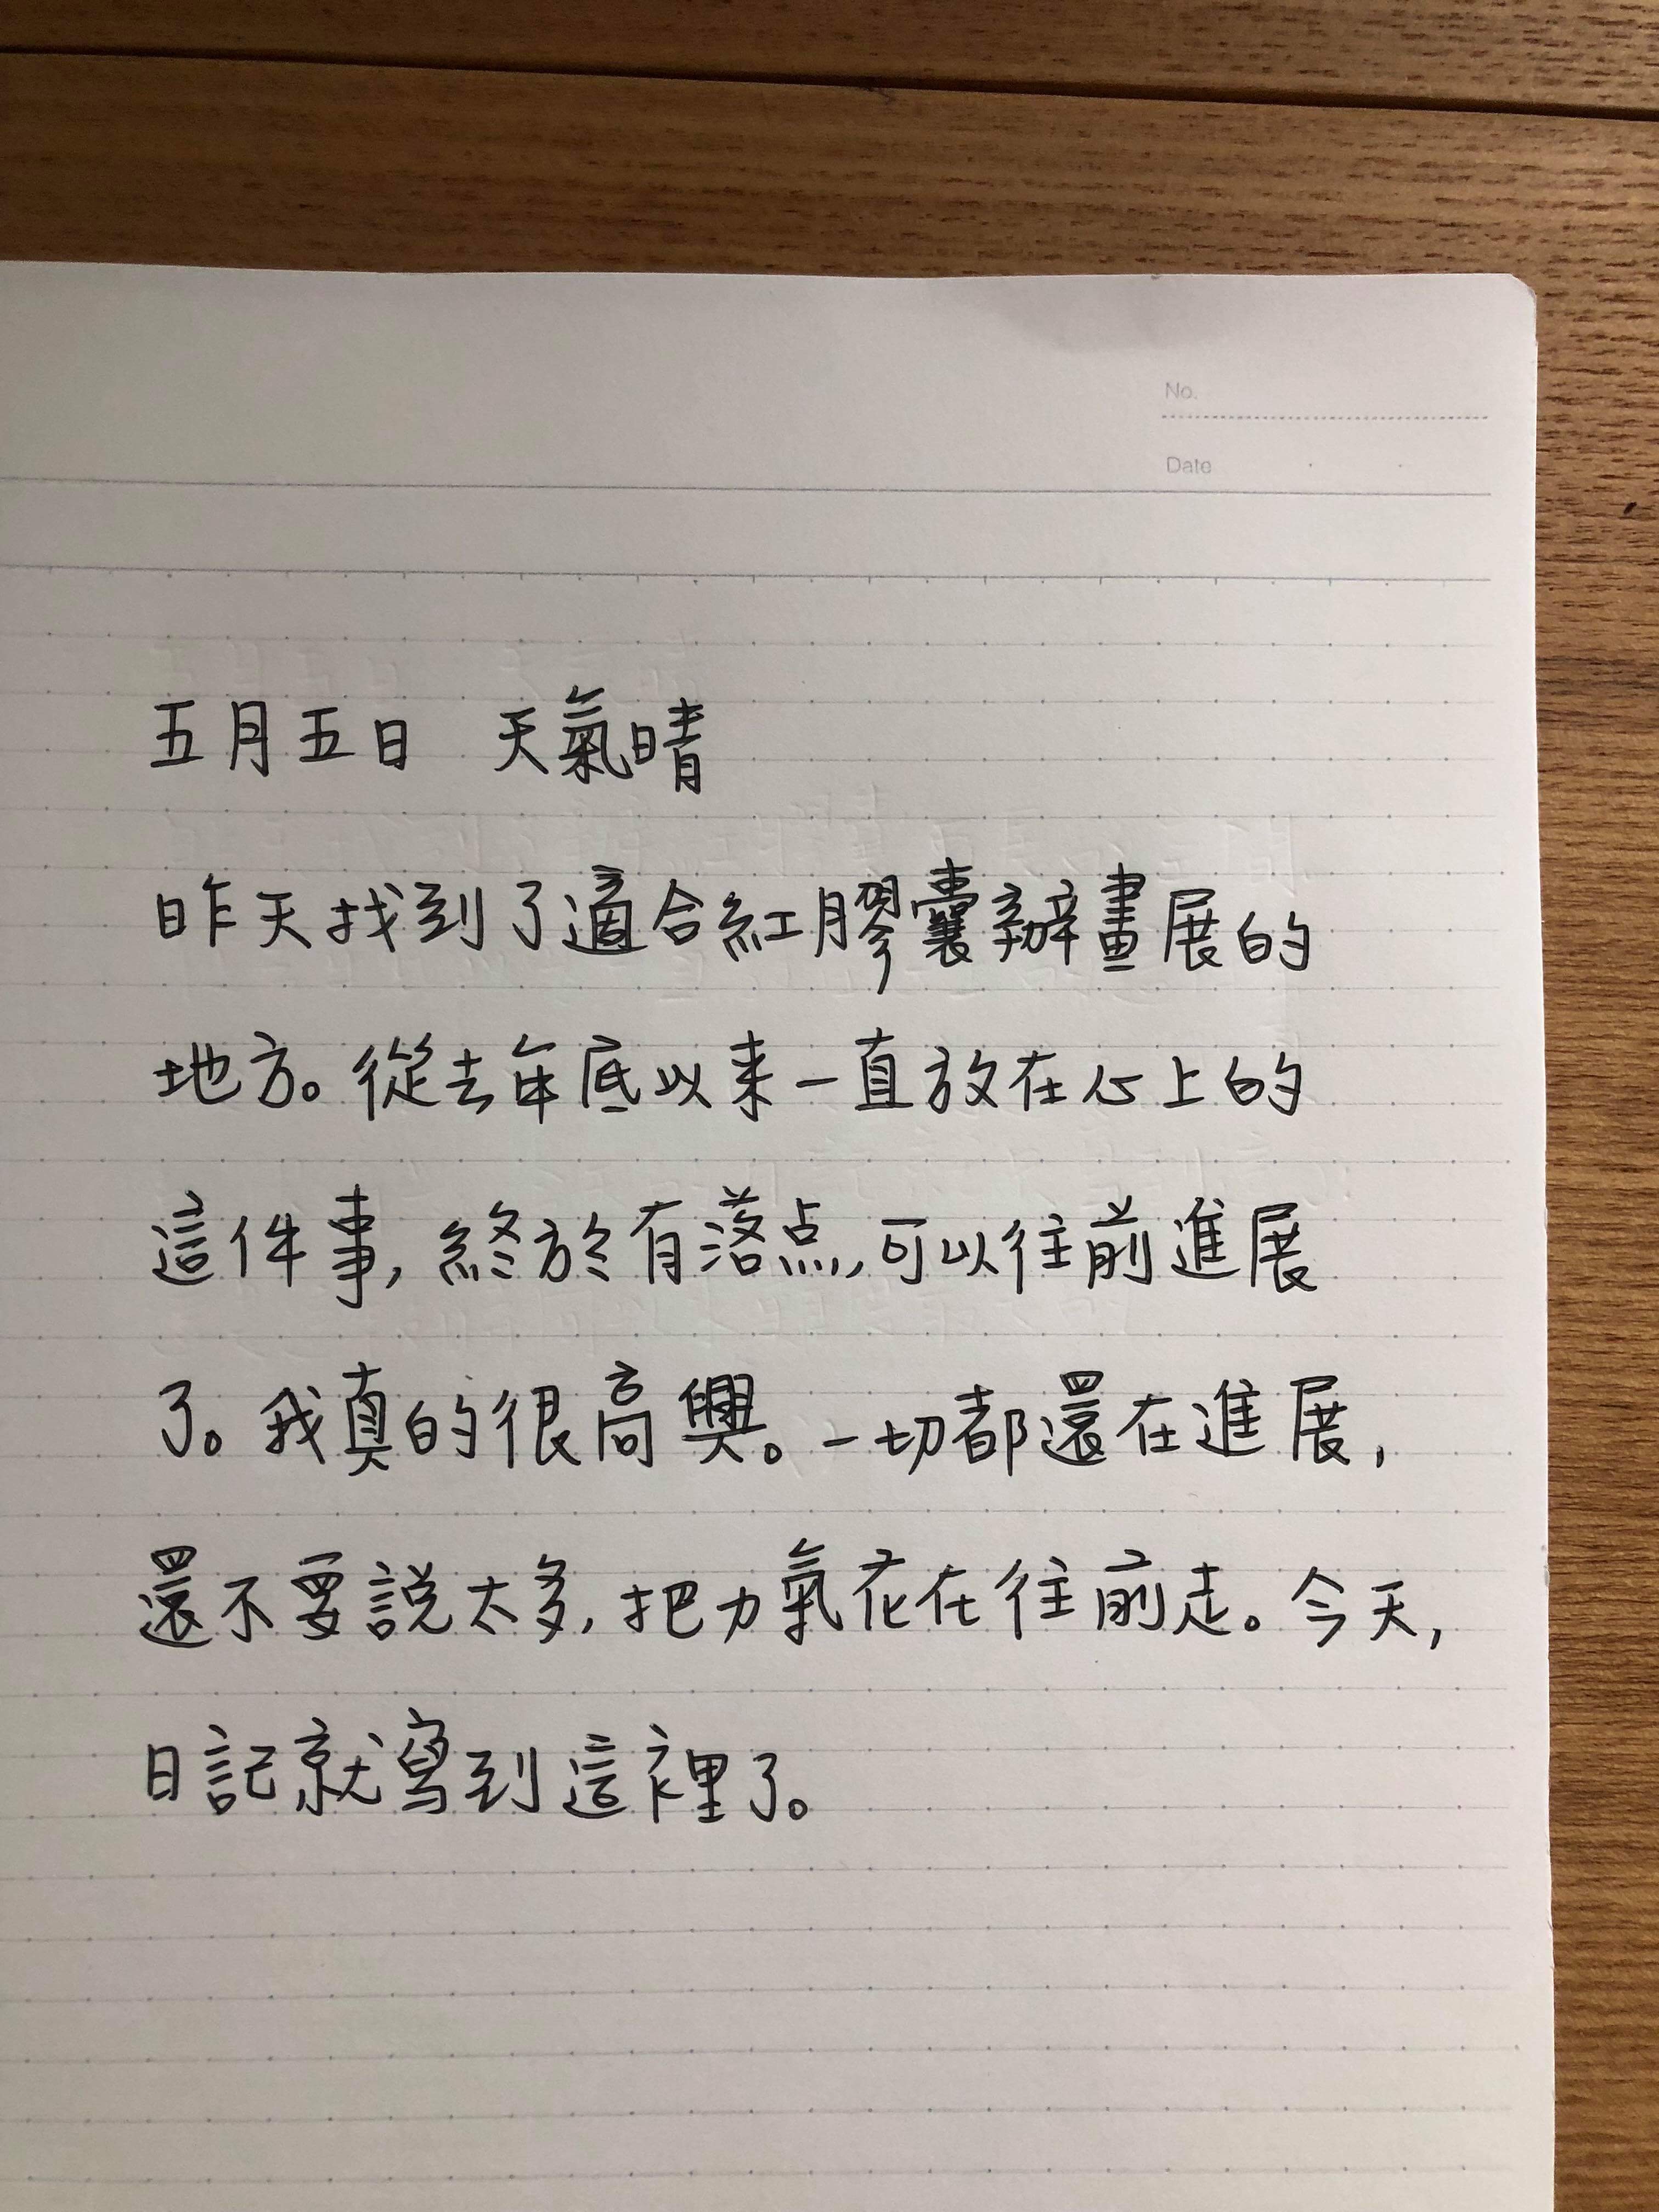 No.
Date
五月五日 天氣晴
昨天找到了適合紅膠囊辦畫展的
地方。從去年底以来一直放在心上的
這件事,終於有落点,可以往前進展
了。我真的很高興。一切都還在進展,
還不要說太多,把力氣花在往前走。今天,
日記就寫到這裡了。